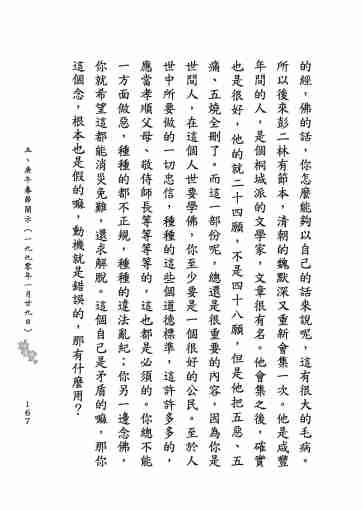 的經，佛的話，你怎麼能夠以自己的話來說呢，這有很大的毛病。
所以後來彭二林有節本，清朝的魏默深又重新會集一次。他是咸豐
年間的人，是個桐城派的文學家，文章很有名。他會集之後，確實
也是很好，他的就二十四願，不是四十八願，但是他把五惡、五
痛、五燒全刪了。而這一部份呢，總還是很重要的內容，因為你是
世間人，在這個人世要學佛，你至少要是一個很好的公民。至於人
世中所要做的一切忠信，種種的這些個道德標準，這許許多多的，
應當孝順父母、敬侍師長等等等等的，這也都是必須的。你總不能
一方面做惡，種種的都不正規，種種的違法亂紀；你另一邊念佛，
你就希望這都能消災免難，還求解脫。這個自己是矛盾的嘛，那你
這個念，根本也是假的嘛，動機就是錯誤的，那有什麼用？
五、庚午春節開示（一九九零年一月廿九日）
167